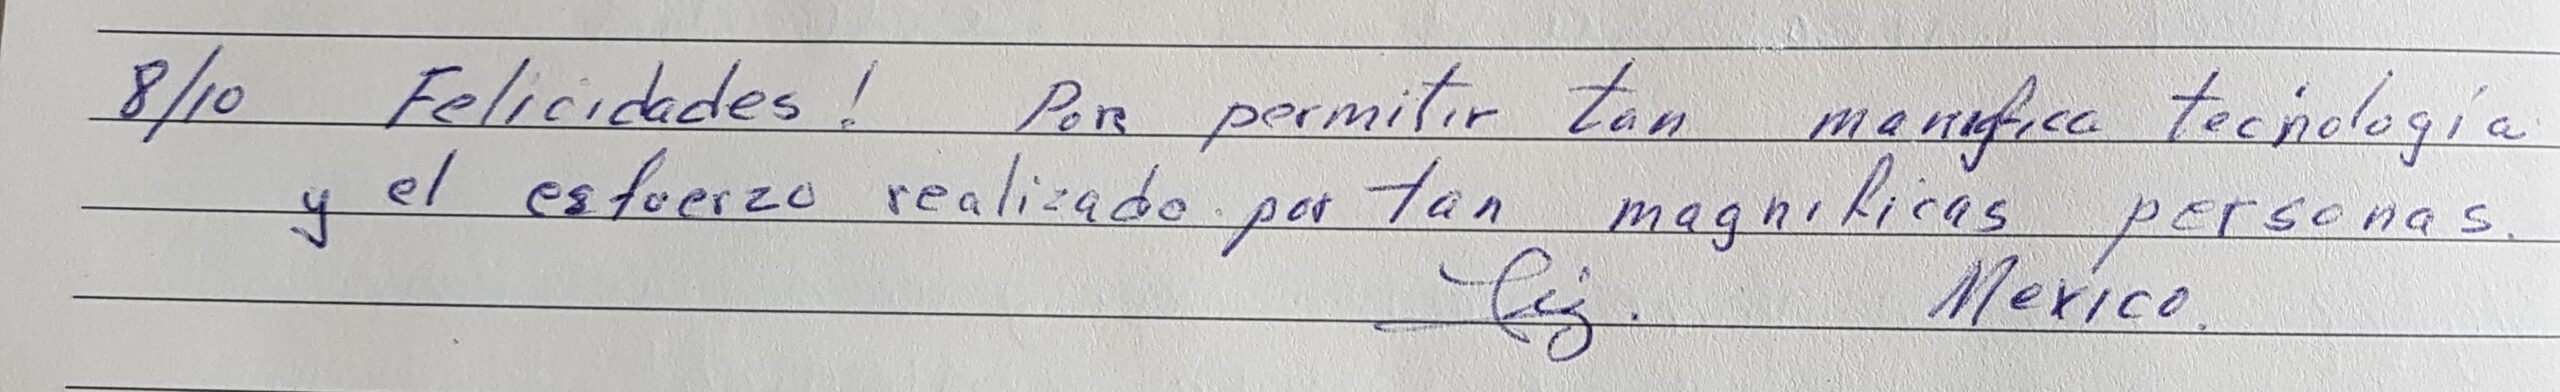 8/10 Felicidades! Por permitir tan manifica tecnología
y el esfuerzo realizado por tan magnificas personas.
Liz. Mexico.